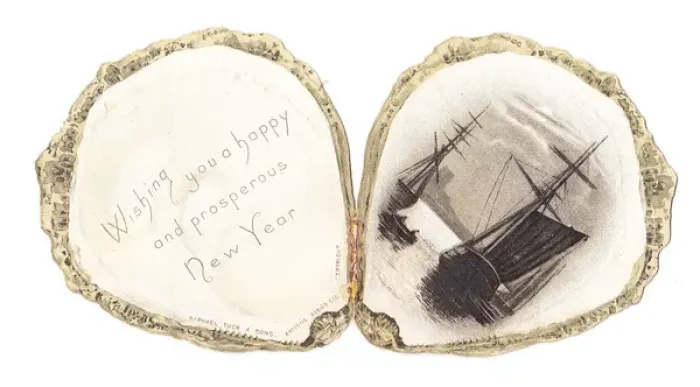 Wishing you a happy
and prosperous
New Year
RAPHAEL TUCK & SONS.